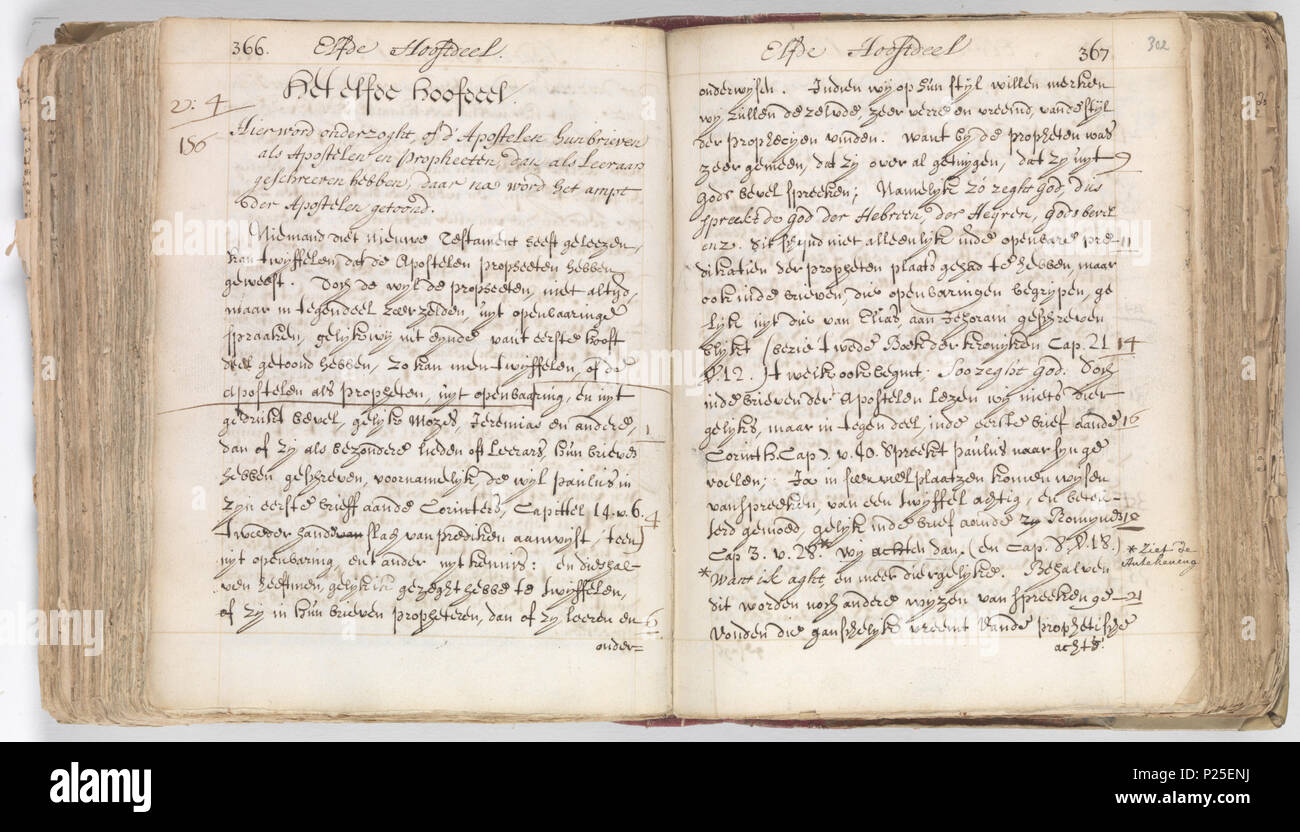 366. Elfde Hooftdeel.
Het elfde Hoofdeel.
v: 4
156
Hier word onderzoght, of d'Apostelen hun brieven
als Apostelen en Propheeten, dan als Leeraars
geschreeven hebben, daar na word het ampt
der Apostelen getoond.
Niemand die't nieuwe Testament heeft geleezen,
kan twyffelen dat de Apostelen propheeten hebben
geweest. Doch de wyl de propheeten, niet altyd,
maar in tegendeel zeer zelden, uyt openbaaringe
spraaken, gelyk wy int eynde van't eerste hooft
deel getoond hebben, zo kan men twyffelen, of de
Apostelen als propheten, uyt openbaaring, en uyt
gedrukt bevel, gelyk Mozes, Jeremias en andere, 1
dan of zy als bezondere lieden oft Leeraars hun brieven
hebben geschreven, voornamelyk, de wyl paulus in
zyn eerste brieff aande Corinters, Capittel 14. v. 6. 4
tweeder hande slach van prediken aanwyst, 't een
uyt openbaring, en't ander uyt kennis: en dieshal
ven heeft men, gelyk ik gezeght hebbe te twyffelen,
of zy in hun brieven propheteren, dan of zy leeren en 6
onder=
Elfde Hooftdeel 367 302
onderwysen. Indien wy op hun styl willen merken
wy zullen de zelvde, zeer verre en vreemd, vande styl
der prophecyen vinden. want by de propheten was
zeer gemeen, dat zy over al getuygen, dat zy uyt 9
gods bevel spreeken; Namelyk zo zeght god, dus
spreekt de god der Hebreen, der Heyren, gods bevel
enz. dit schynd niet alleenlyk inde openbare pre 11
dikatien der propheten plaats gehad te hebben, maar
ook inde brieven, die openbaringen begrypen, ge
lyk uyt die van Elias, aan Jehoram geschreven
blykt (bezie 't twede Boek der kronyken Cap. 21 14
v. 12.) 't welk ook begint; Soo zeght god. Doch
inde brieven der Apostelen lezen wy niets dier
gelyks, maar in tegen deel, inde eerste brief aande 16
Corinth. Cap 7. v. 40. spreekt paulus naar syn ge
voelen; Ja in seer veel plaatzen komen wysen
van spreeken, van een twyffel achtig, en bever-
lerd gemoed, gelyk inde brief aande Romynen 18
Cap 3. v. 28* wy achten dan. (en Cap. 8. v. 18.)
* Ziet de
Antekening
*Want ik aght, en meer diergelyke. Behalven
dit worden noch andere wyzen van spreeken ge 21
vonden die ganschelyk vreemt vande prophetische
acht
alamy
Image ID: P25ENJ
www.alamy.com